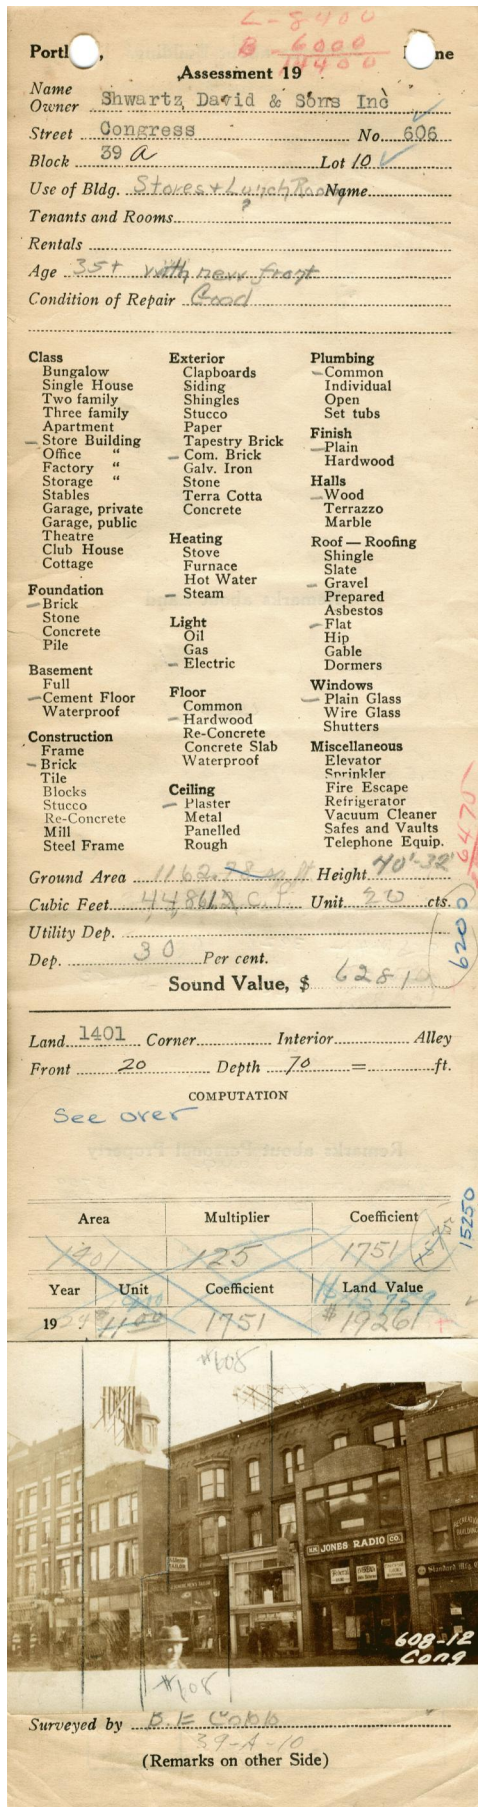 L- 8400
B- 6000
14400
Portl , ne
Assessment 19
Name
Owner Shwartz David & Sons Inc
Street Congress No. 606
Block 39 A Lot 10
Use of Bldg. Stores + Lunch Room Name
?
Tenants and Rooms
Rentals
Age 35+ with new front
Condition of Repair Good
Class
Bungalow
Single House
Two family
Three family
Apartment
Store Building
Office "
Factory "
Storage "
Stables
Garage, private
Garage, public
Theatre
Club House
Cottage
Foundation
Brick
Stone
Concrete
Pile
Basement
Full
Cement Floor
Waterproof
Construction
Frame
Brick
Tile
Blocks
Stucco
Re-Concrete
Mill
Steel Frame
Exterior
Clapboards
Siding
Shingles
Stucco
Paper
Tapestry Brick
Com. Brick
Galv. Iron
Stone
Terra Cotta
Concrete
Heating
Stove
Furnace
Hot Water
Steam
Light
Oil
Gas
Electric
Floor
Common
Hardwood
Re-Concrete
Concrete Slab
Waterproof
Ceiling
Plaster
Metal
Panelled
Rough
Plumbing
Common
Individual
Open
Set tubs
Finish
Plain
Hardwood
Halls
Wood
Terrazzo
Marble
Roof — Roofing
Shingle
Slate
Gravel
Prepared
Asbestos
Flat
Hip
Gable
Dormers
Windows
Plain Glass
Wire Glass
Shutters
Miscellaneous
Elevator
Sprinkler
Fire Escape
Refrigerator
Vacuum Cleaner
Safes and Vaults
Telephone Equip.
6475
Ground Area 1162 sq ft Height 40'-32'
Cubic Feet C.F. Unit 20 cts.
Utility Dep.
6200
Dep. 30 Per cent.
Sound Value, $ 6281
Land 1401 Corner Interior Alley
Front 20 Depth 70 = ft.
COMPUTATION
See over
15250
Area Multiplier Coefficient
1401 125 1751
Year Unit Coefficient Land Value
19 24 1100 1751 $19261
#608
H.H. JONES RADIO CO.
Standard Mfg.
608-12
Cong
#608
Surveyed by B.E Cobb
39-A-10
(Remarks on other Side)